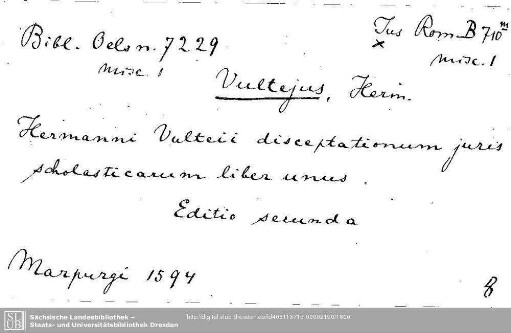 Bibl. Oels n. 7229
misc. 1
Jus Rom. B 710 m
x
misc. 1
Vultejus, Herm.
Hermanni Vulteii disceptationum juris
scholasticarum liber unus.
Editio secunda
Marpurgi 1594
SLUB
Sächsische Landesbibliothek –
Staats- und Universitätsbibliothek Dresden